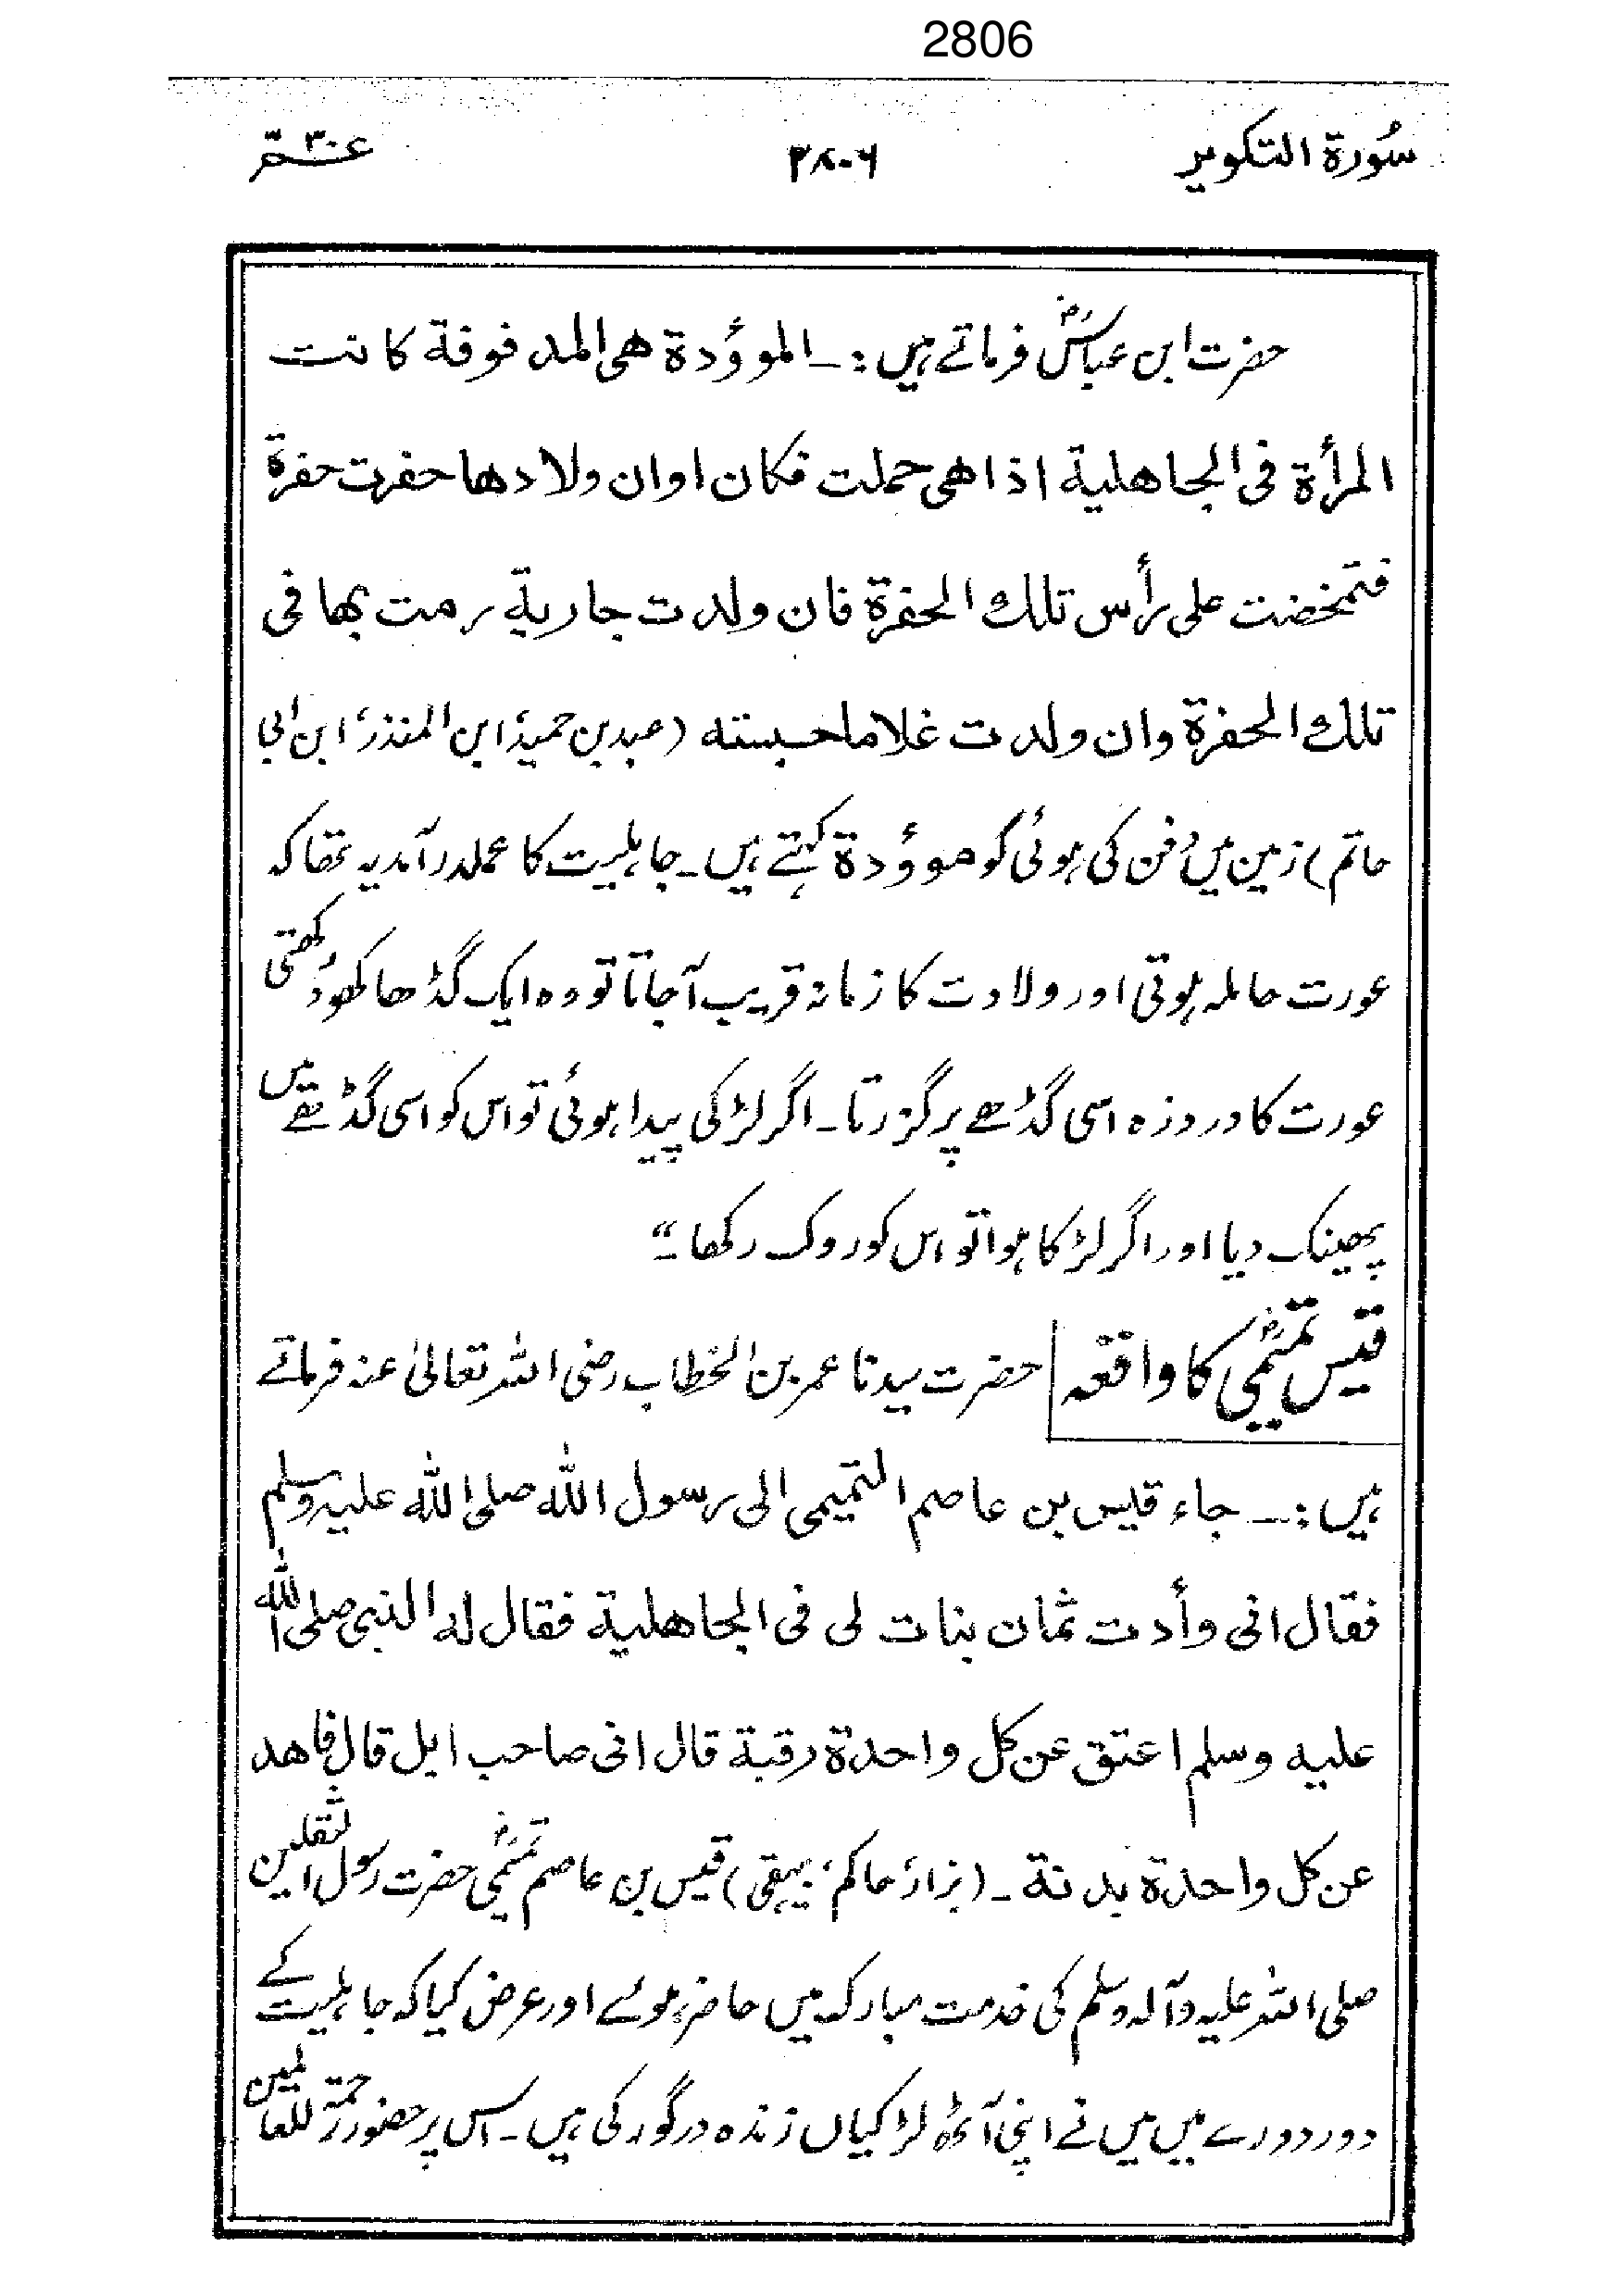 2806
سُورۃ التکویر ۲۸۰۶ عمّ ۳۰
حضرت ابن عباسؓ فرماتے ہیں :۔ الموؤدة هى المدفوفة كانت
المرأة فى الجاهلية اذا هى حملت فكان اوان ولادها حفرت حفرة
فتمخضت على رأس تلك الحفرة فان ولدت جارية رمت بها فى
تلك الحفرة وان ولدت غلاما حبسته (عبد بن حمید، ابن المنذر، ابن ابی
حاتم) زمین میں دفن کی ہوئی کو موؤدة کہتے ہیں۔ جاہلیت کا عملدرآمد یہ تھا کہ
عورت حاملہ ہوتی اور ولادت کا زمانہ قریب آجاتا تو وہ ایک گڈھا کھود رکھتی
عورت کا دردزہ اسی گڈھے پر گزرتا۔ اگر لڑکی پیدا ہوئی تو اس کو اسی گڈھے میں
پھینک دیا اور اگر لڑکا ہوا تو اس کو روک رکھا ۔“
قیس تمیمیؓ کا واقعہ حضرت سیدنا عمر بن الخطاب رضی اللہ تعالیٰ عنہ فرماتے
ہیں :۔ جاء قيس بن عاصم التميمى الى رسول الله صلى الله عليه وسلم
فقال انى وأدت ثمان بنات لى فى الجاهلية فقال له النبى صلى الله
عليه وسلم اعتق عن كل واحدة رقبة قال انى صاحب ابل قال فاهد
عن كل واحدة بدنة ۔ (بزار، حاکم، بیہقی) قیس بن عاصم تمیمیؓ حضرت رسول الثقلین
صلی اللہ علیہ وآلہ وسلم کی خدمت مبارکہ میں حاضر ہوئے اور عرض کیا کہ جاہلیت کے
دور دورے میں میں نے اپنی آٹھ لڑکیاں زندہ درگور کی ہیں۔ اس پر حضور رحمۃ للعالمین